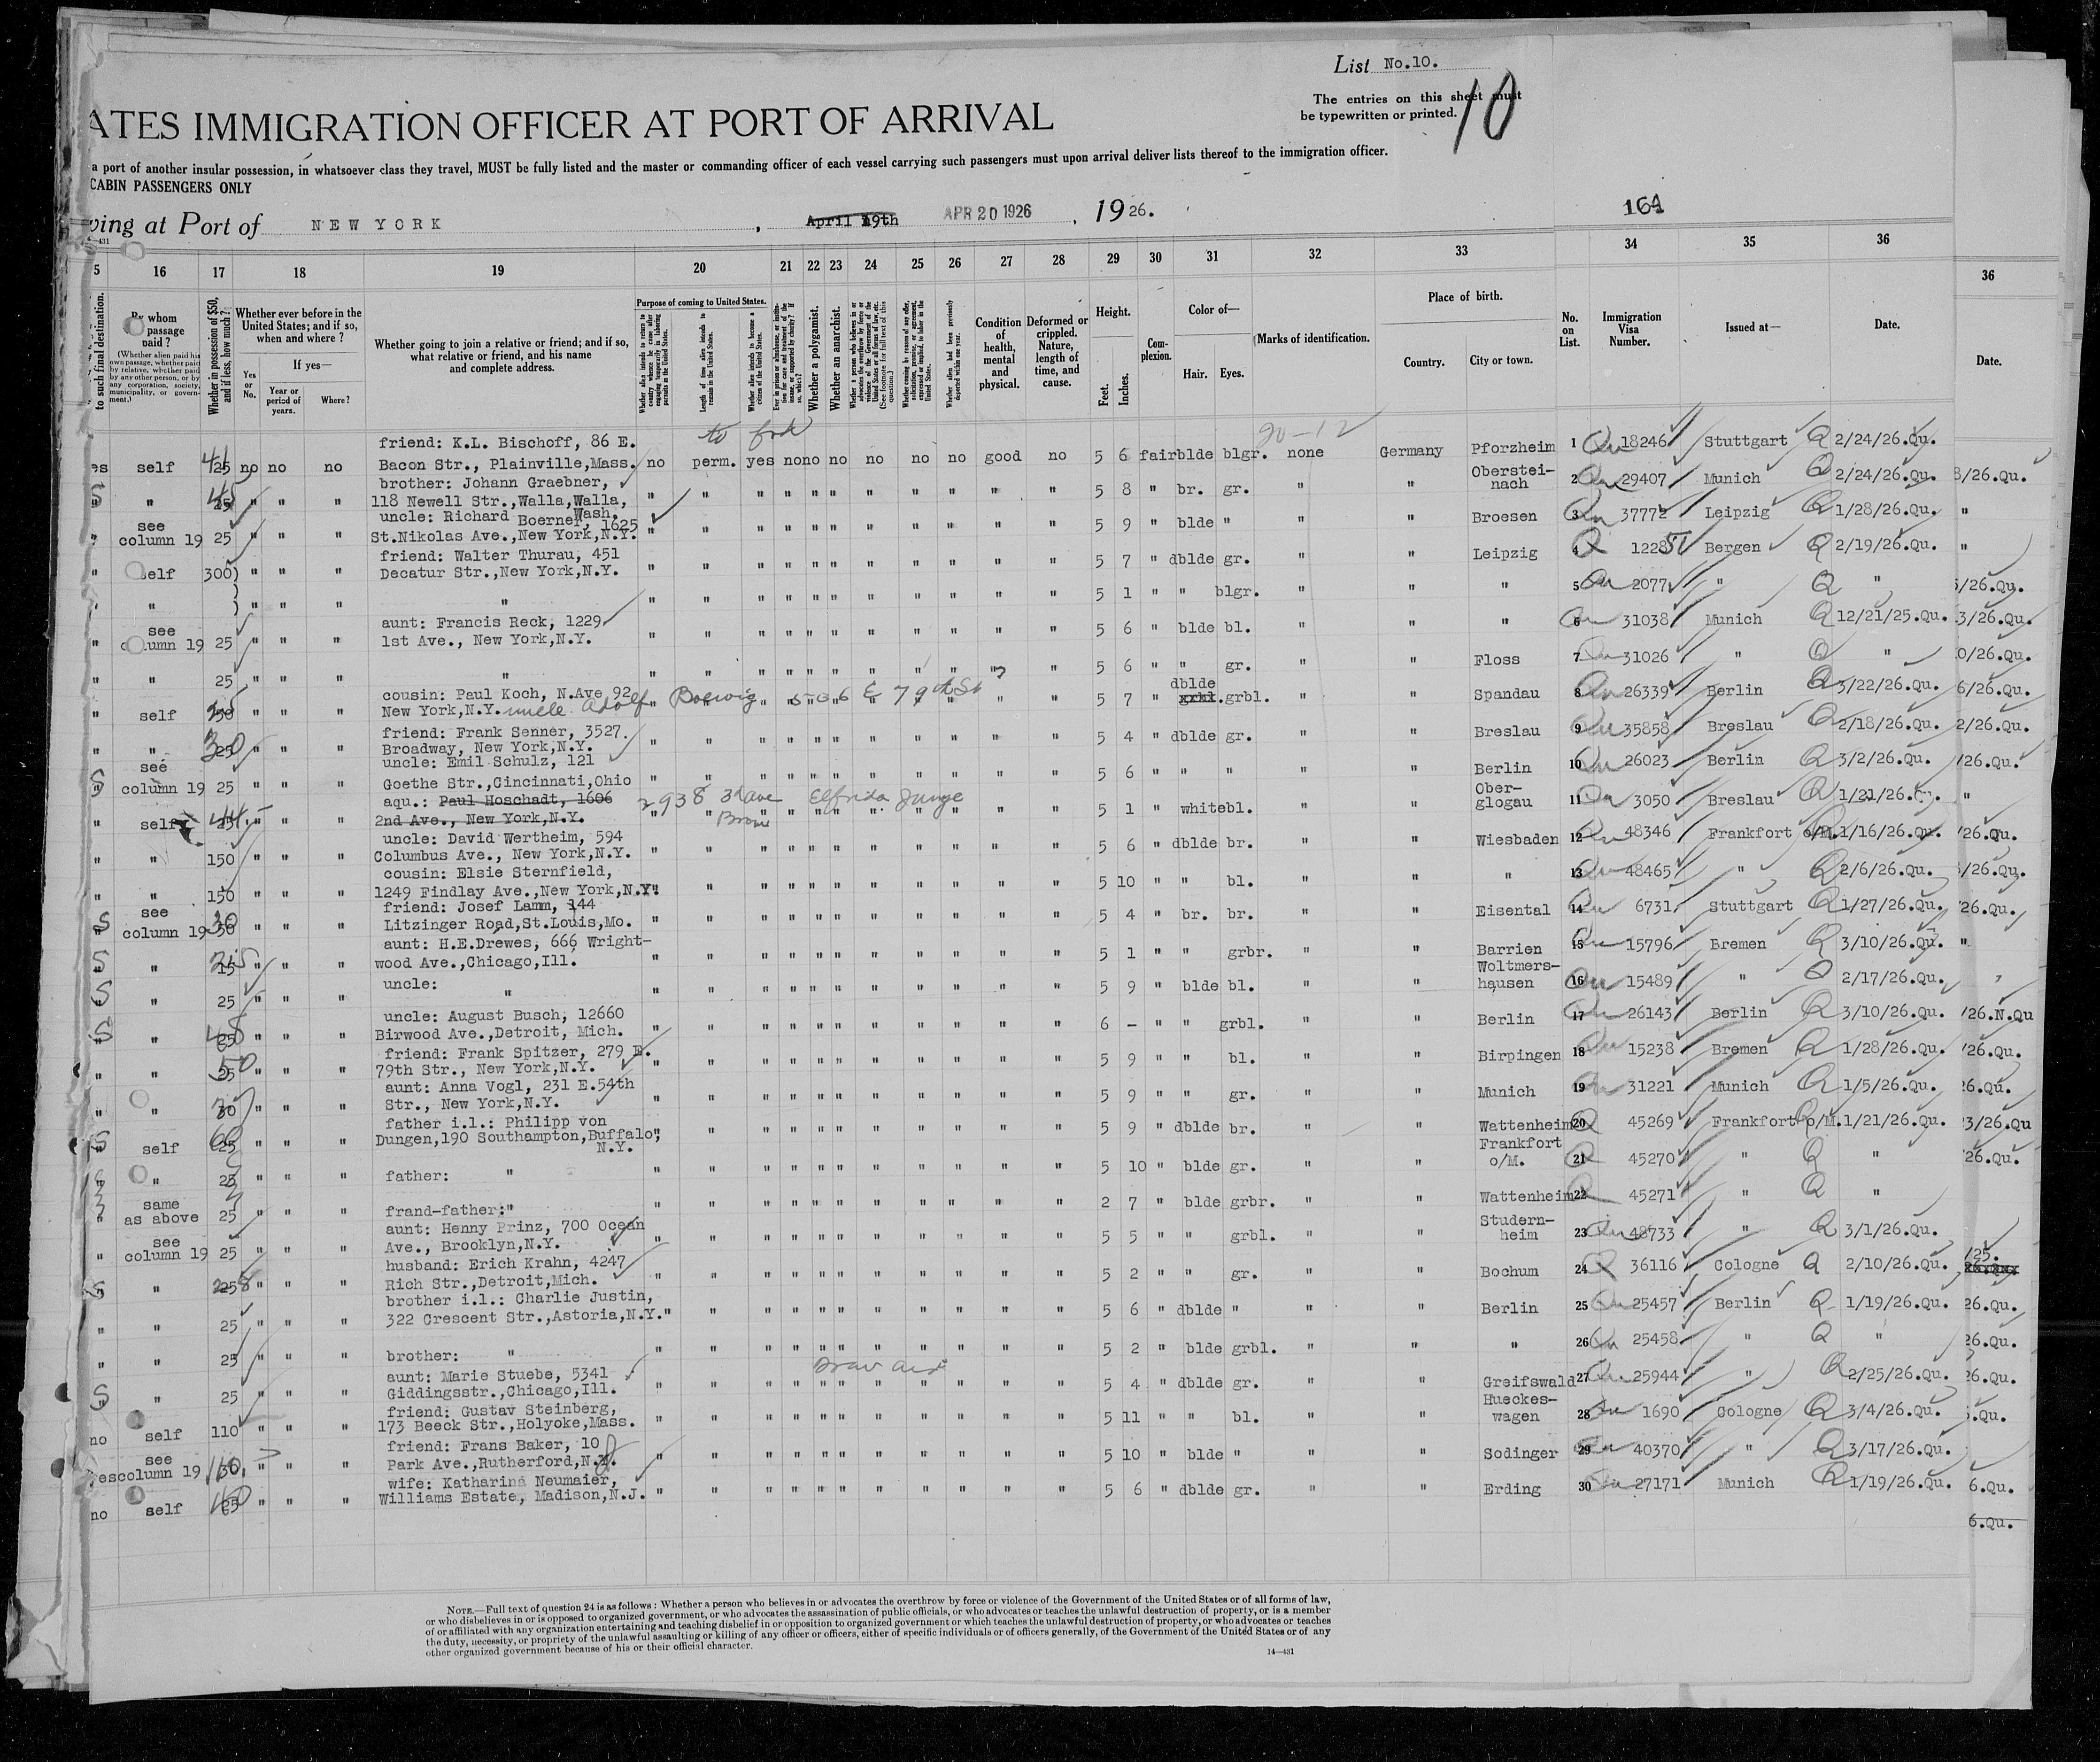 List No.10.
The entries on this sheet must
be typewritten or printed.
10
ATES IMMIGRATION OFFICER AT PORT OF ARRIVAL
a port of another insular possession, in whatsoever class they travel, MUST be fully listed and the master or commanding officer of each vessel carrying such passengers must upon arrival deliver lists thereof to the immigration officer.
CABIN PASSENGERS ONLY
ving at Port of NEW YORK , April 19th APR 20 1926 , 1926.
164
5 16 17 18 19 20 21 22 23 24 25 26 27 28 29 30 31 32 33 34 35 36
36
to such final destination.
By whom passage paid?
(Whether alien paid his own passage, whether paid by relative, whether paid by any other person, or by any corporation, society, municipality, or government.)
Whether in possession of $50, and if less, how much?
Whether ever before in the United States; and if so, when and where?
If yes—
Yes or No.
Year or period of years.
Where?
Whether going to join a relative or friend; and if so, what relative or friend, and his name and complete address.
Purpose of coming to United States.
Whether alien intends to return to country whence he came after engaging temporarily in laboring pursuits in the United States.
Length of time alien intends to remain in the United States.
Whether alien intends to become a citizen of the United States.
Whether a polygamist.
Whether an anarchist.
Condition of health, mental and physical.
Deformed or crippled. Nature, length of time, and cause.
Height.
Feet. Inches.
Complexion.
Color of—
Hair. Eyes.
Marks of identification.
Place of birth.
Country. City or town.
No. on List.
Immigration Visa Number.
Issued at—
Date.
Date.
friend: K.L. Bischoff, 86 E.
es self 25 no no no Bacon Str., Plainville,Mass. no perm. yes no no no no no no good no 5 6 fair blde blgr. none Germany Pforzheim 1 18246 Stuttgart 2/24/26.Qu.
brother: Johann Graebner,
" 25 " " " 118 Newell Str.,Walla,Walla, Wash. " " " " " " " " " " " 5 8 " br. gr. " " Oberstei-nach 2 29407 Munich 2/24/26.Qu.
uncle: Richard Boerner, 1625
" see column 19 25 " " " St.Nikolas Ave.,New York,N.Y. " " " " " " " " " " " 5 9 " blde " " " Broesen 3 37772 Leipzig 1/28/26.Qu.
friend: Walter Thurau, 451
" self 300 " " " Decatur Str.,New York,N.Y. " " " " " " " " " " " 5 7 " dblde gr. " " Leipzig 4 1228 Bergen 2/19/26.Qu.
" " " " " " " " " " " " " " " " " 5 1 " " blgr. " " " 5 2077 " "
aunt: Francis Reck, 1229
" see column 19 25 " " " 1st Ave., New York,N.Y. " " " " " " " " " " " 5 6 " blde bl. " " " 6 31038 Munich 12/21/25.Qu.
" " 25 " " " " " " " " " " " " " " " 5 6 " " gr. " " Floss 7 31026 " "
cousin: Paul Koch, N.Ave 92
" self " " " New York,N.Y. uncle Adolf 506 E 79th St 5 7 " dblde grbl. " " Spandau 8 26339 Berlin 3/22/26.Qu.
friend: Frank Senner, 3527.
" " 25 " " " Broadway, New York,N.Y. " " " " " " " " " " " 5 4 " dblde gr. " " Breslau 9 35858 Breslau 2/18/26.Qu.
uncle: Emil Schulz, 121
" see column 19 25 " " " Goethe Str.,Cincinnati,Ohio " " " " " " " " " " " 5 6 " " " " " Berlin 10 26023 Berlin 3/2/26.Qu.
aqu.: Paul Hoschadt, 1606 2938 3d Ave Elfrida Junge
" self 25 " " " 2nd Ave., New York,N.Y. " " Bronx " " " " " " " " " 5 1 " white bl. " " Ober-glogau 11 3050 Breslau 1/21/26.Qu.
uncle: David Wertheim, 594
" " 150 " " " Columbus Ave., New York,N.Y. " " " " " " " " " " " 5 6 " dblde br. " " Wiesbaden 12 48346 Frankfort o/M. 1/16/26.Qu.
cousin: Elsie Sternfield,
" " 150 " " " 1249 Findlay Ave.,New York,N.Y. " " " " " " " " " " " 5 10 " " bl. " " " 13 48465 " 2/6/26.Qu.
friend: Josef Lamm, 144
" see column 19 30 " " " Litzinger Road,St.Louis,Mo. " " " " " " " " " " " 5 4 " br. br. " " Eisental 14 6731 Stuttgart 1/27/26.Qu.
aunt: H.E.Drewes, 666 Wright-
" " 15 " " " wood Ave.,Chicago,Ill. " " " " " " " " " " " 5 1 " " grbr. " " Barrien 15 15796 Bremen 3/10/26.Qu.
" " 25 " " " uncle: " " " " " " " " " " " " 5 9 " blde bl. " " Woltmers-hausen 16 15489 " 2/17/26.Qu.
uncle: August Busch, 12660
" " 25 " " " Birwood Ave.,Detroit, Mich. " " " " " " " " " " " 6 - " " grbl. " " Berlin 17 26143 Berlin 3/10/26.Qu.
friend: Frank Spitzer, 279 E.
" " 25 " " " 79th Str., New York,N.Y. " " " " " " " " " " " 5 9 " " bl. " " Birpingen 18 15238 Bremen 1/28/26.Qu.
aunt: Anna Vogl, 231 E.54th
" " 30 " " " Str., New York,N.Y. " " " " " " " " " " " 5 9 " " gr. " " Munich 19 31221 Munich 1/5/26.Qu.
father i.l.: Philipp von
" self 25 " " " Dungen,190 Southampton,Buffalo, N.Y. " " " " " " " " " " " 5 9 " dblde br. " " Wattenheim 20 45269 Frankfort o/M. 1/21/26.Qu.
" " 25 " " " father: " " " " " " " " " " " " 5 10 " blde gr. " " Frankfort o/M. 21 45270 " "
" same as above 25 " " " frand-father: " " " " " " " " " " " " 2 7 " blde grbr. " " Wattenheim 22 45271 " "
aunt: Henny Prinz, 700 Ocean
" see column 19 25 " " " Ave., Brooklyn,N.Y. " " " " " " " " " " " 5 5 " " grbl. " " Studern-heim 23 48733 " 3/1/26.Qu.
husband: Erich Krahn, 4247
" " 25 " " " Rich Str.,Detroit,Mich. " " " " " " " " " " " 5 2 " " gr. " " Bochum 24 36116 Cologne 2/10/26.Qu.
brother i.l.: Charlie Justin,
" " 25 " " " 322 Crescent Str.,Astoria,N.Y. " " " " " " " " " " " 5 6 " dblde " " " Berlin 25 25457 Berlin 1/19/26.Qu.
" " 25 " " " brother: " " " " " " " " " " " " 5 2 " blde grbl. " " " 26 25458 " "
aunt: Marie Stuebe, 5341
" " 25 " " " Giddingsstr.,Chicago,Ill. " " " " " " " " " " " 5 4 " dblde gr. " " Greifswald 27 25944 " 2/25/26.Qu.
friend: Gustav Steinberg,
no self 110 " " " 173 Beeck Str.,Holyoke,Mass. " " " " " " " " " " " 5 11 " " bl. " " Hueckes-wagen 28 1690 Cologne 3/4/26.Qu.
friend: Frans Baker, 10
yes see column 19 30 " " " Park Ave.,Rutherford,N.J. " " " " " " " " " " " 5 10 " blde " " " Sodinger 29 40370 " 3/17/26.Qu.
wife: Katharina Neumaier,
no self 25 " " " Williams Estate, Madison,N.J. " " " " " " " " " " " 5 6 " dblde gr. " " Erding 30 27171 Munich 1/19/26.Qu.
NOTE.—Full text of question 24 is as follows: Whether a person who believes in or advocates the overthrow by force or violence of the Government of the United States or of all forms of law,
or who disbelieves in or is opposed to organized government, or who advocates the assassination of public officials, or who advocates or teaches the unlawful destruction of property, or is a member
of or affiliated with any organization entertaining and teaching disbelief in or opposition to organized government or which teaches the unlawful destruction of property, or who advocates or teaches
the duty, necessity, or propriety of the unlawful assaulting or killing of any officer or officers, either of specific individuals or of officers generally, of the Government of the United States or of any
other organized government because of his or their official character.
14—431